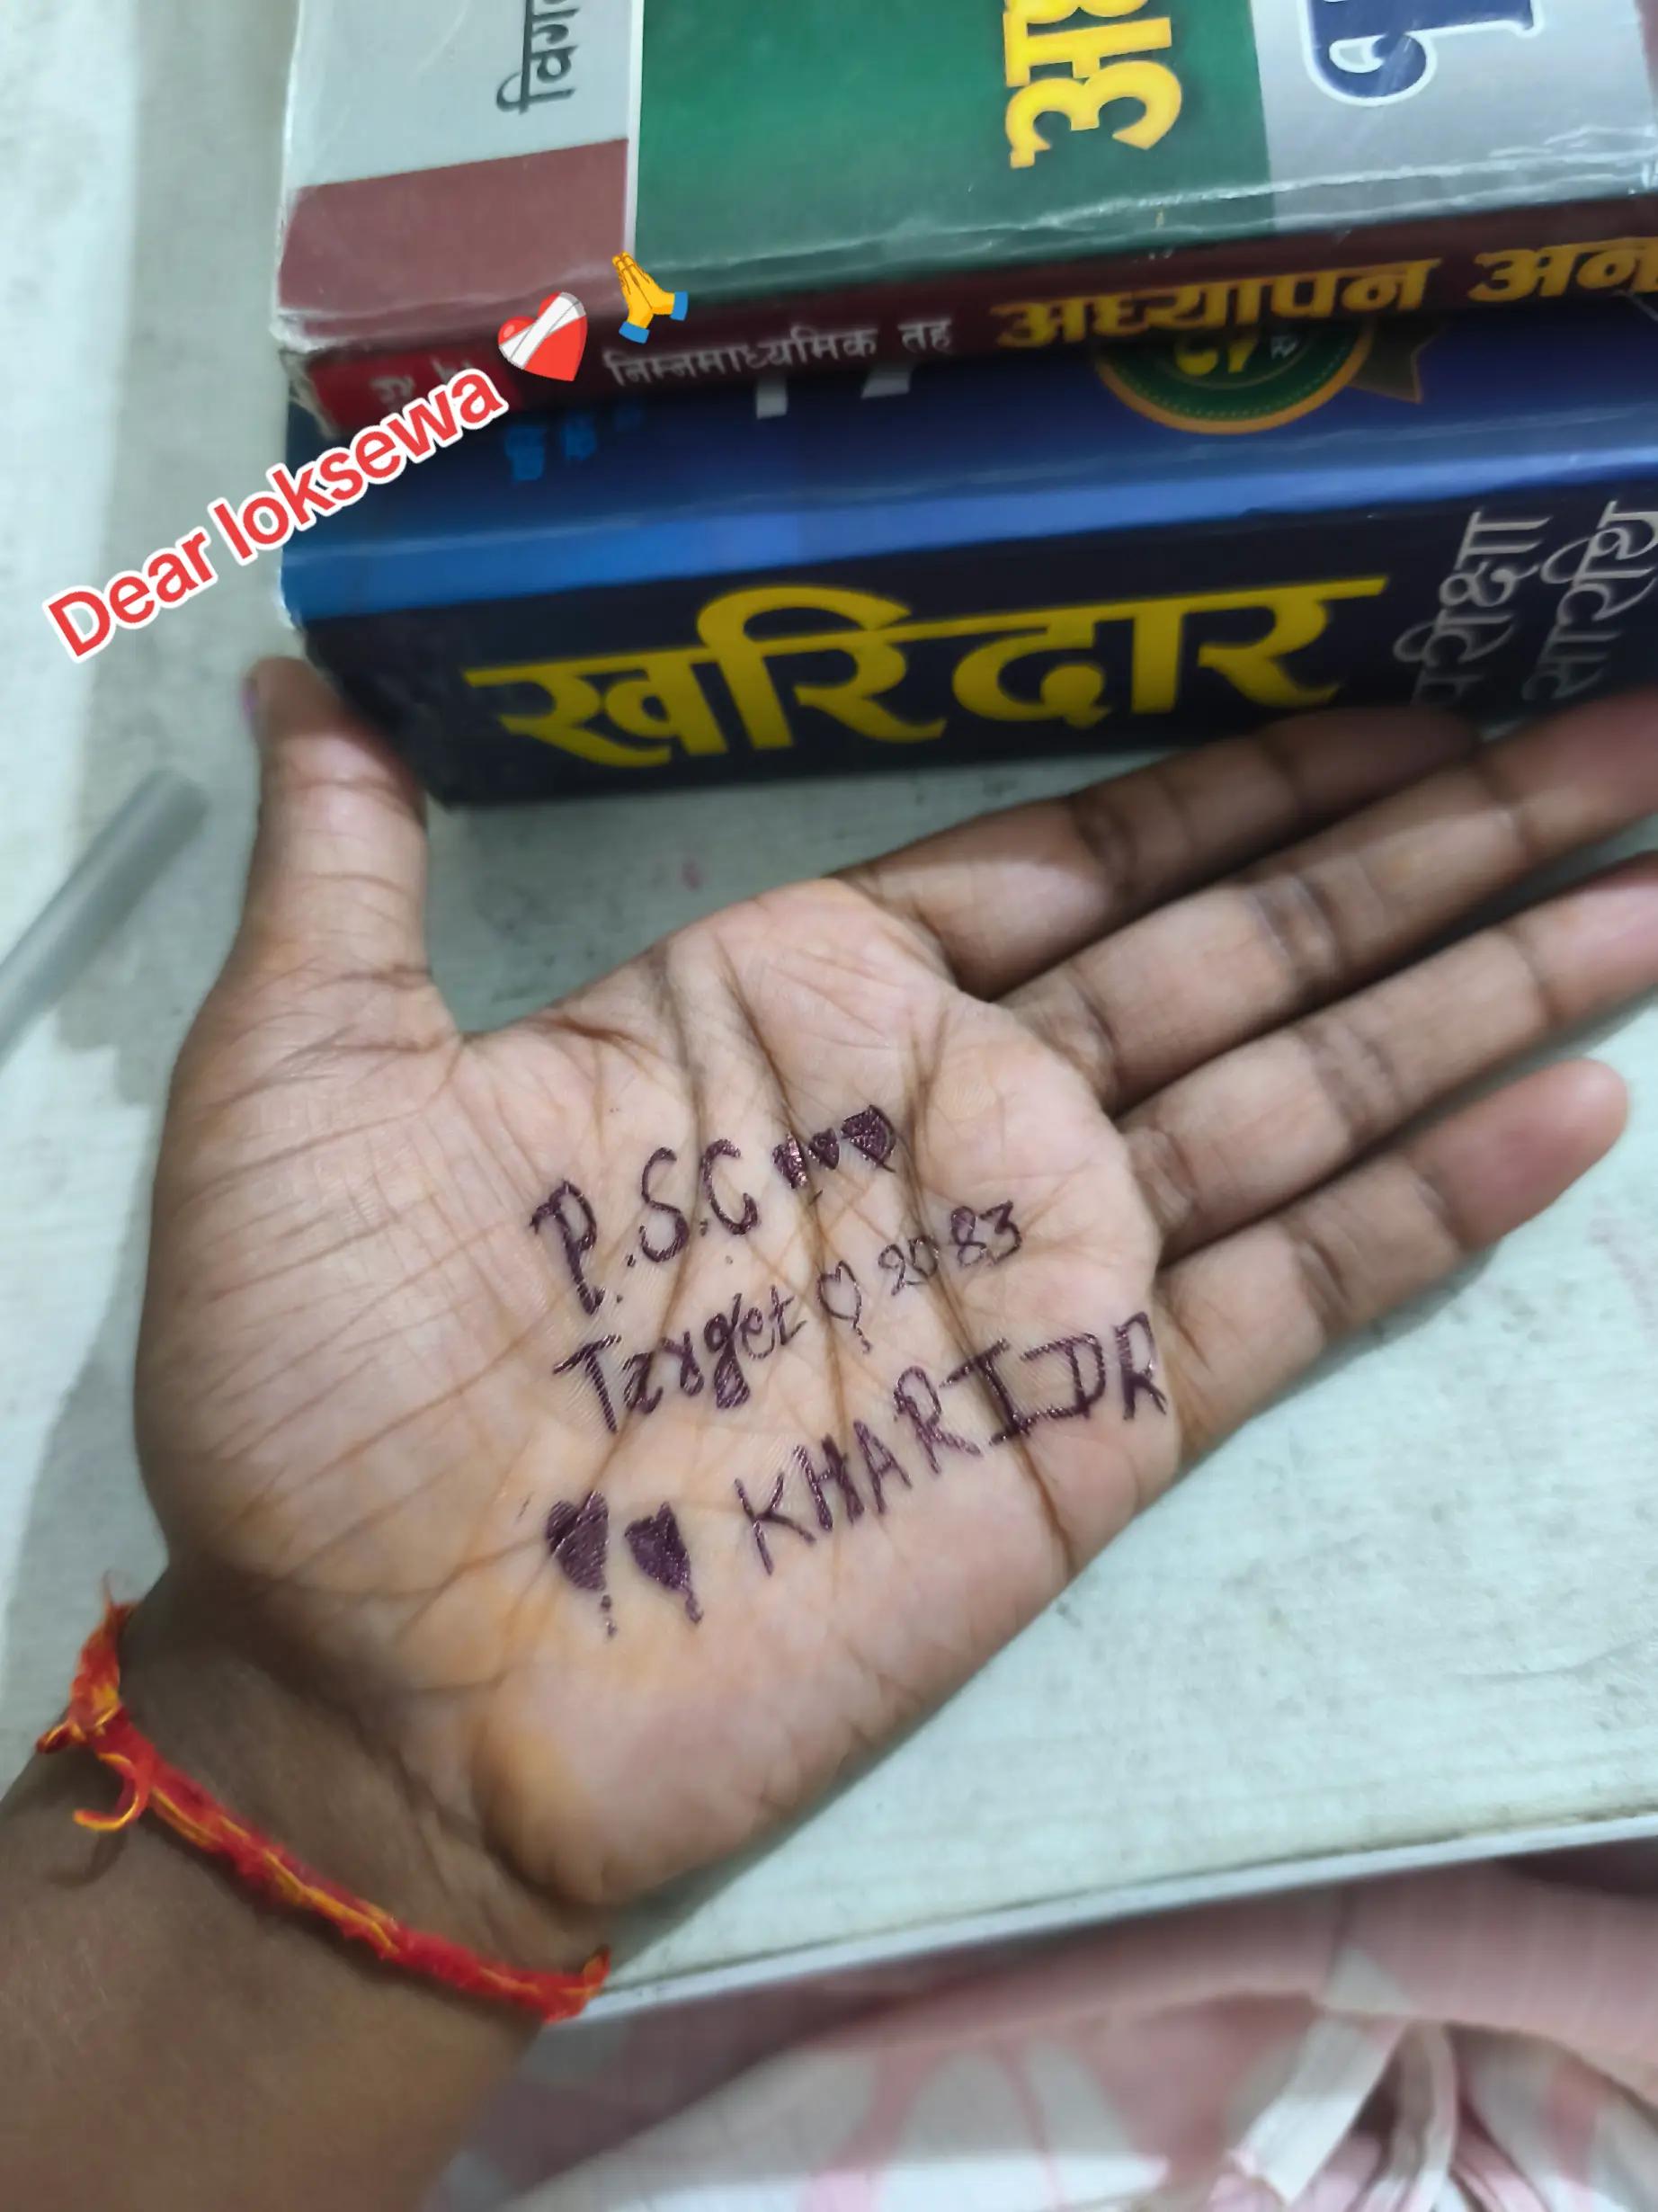 Dear loksewa ❤️‍🩹 🙏
निम्नमाध्यमिक तह
अध्यापन
खरिदार
परीक्षा
P.S.C ♥♥♥
Target ♡ 2083
♥ ♥ KHARIDR